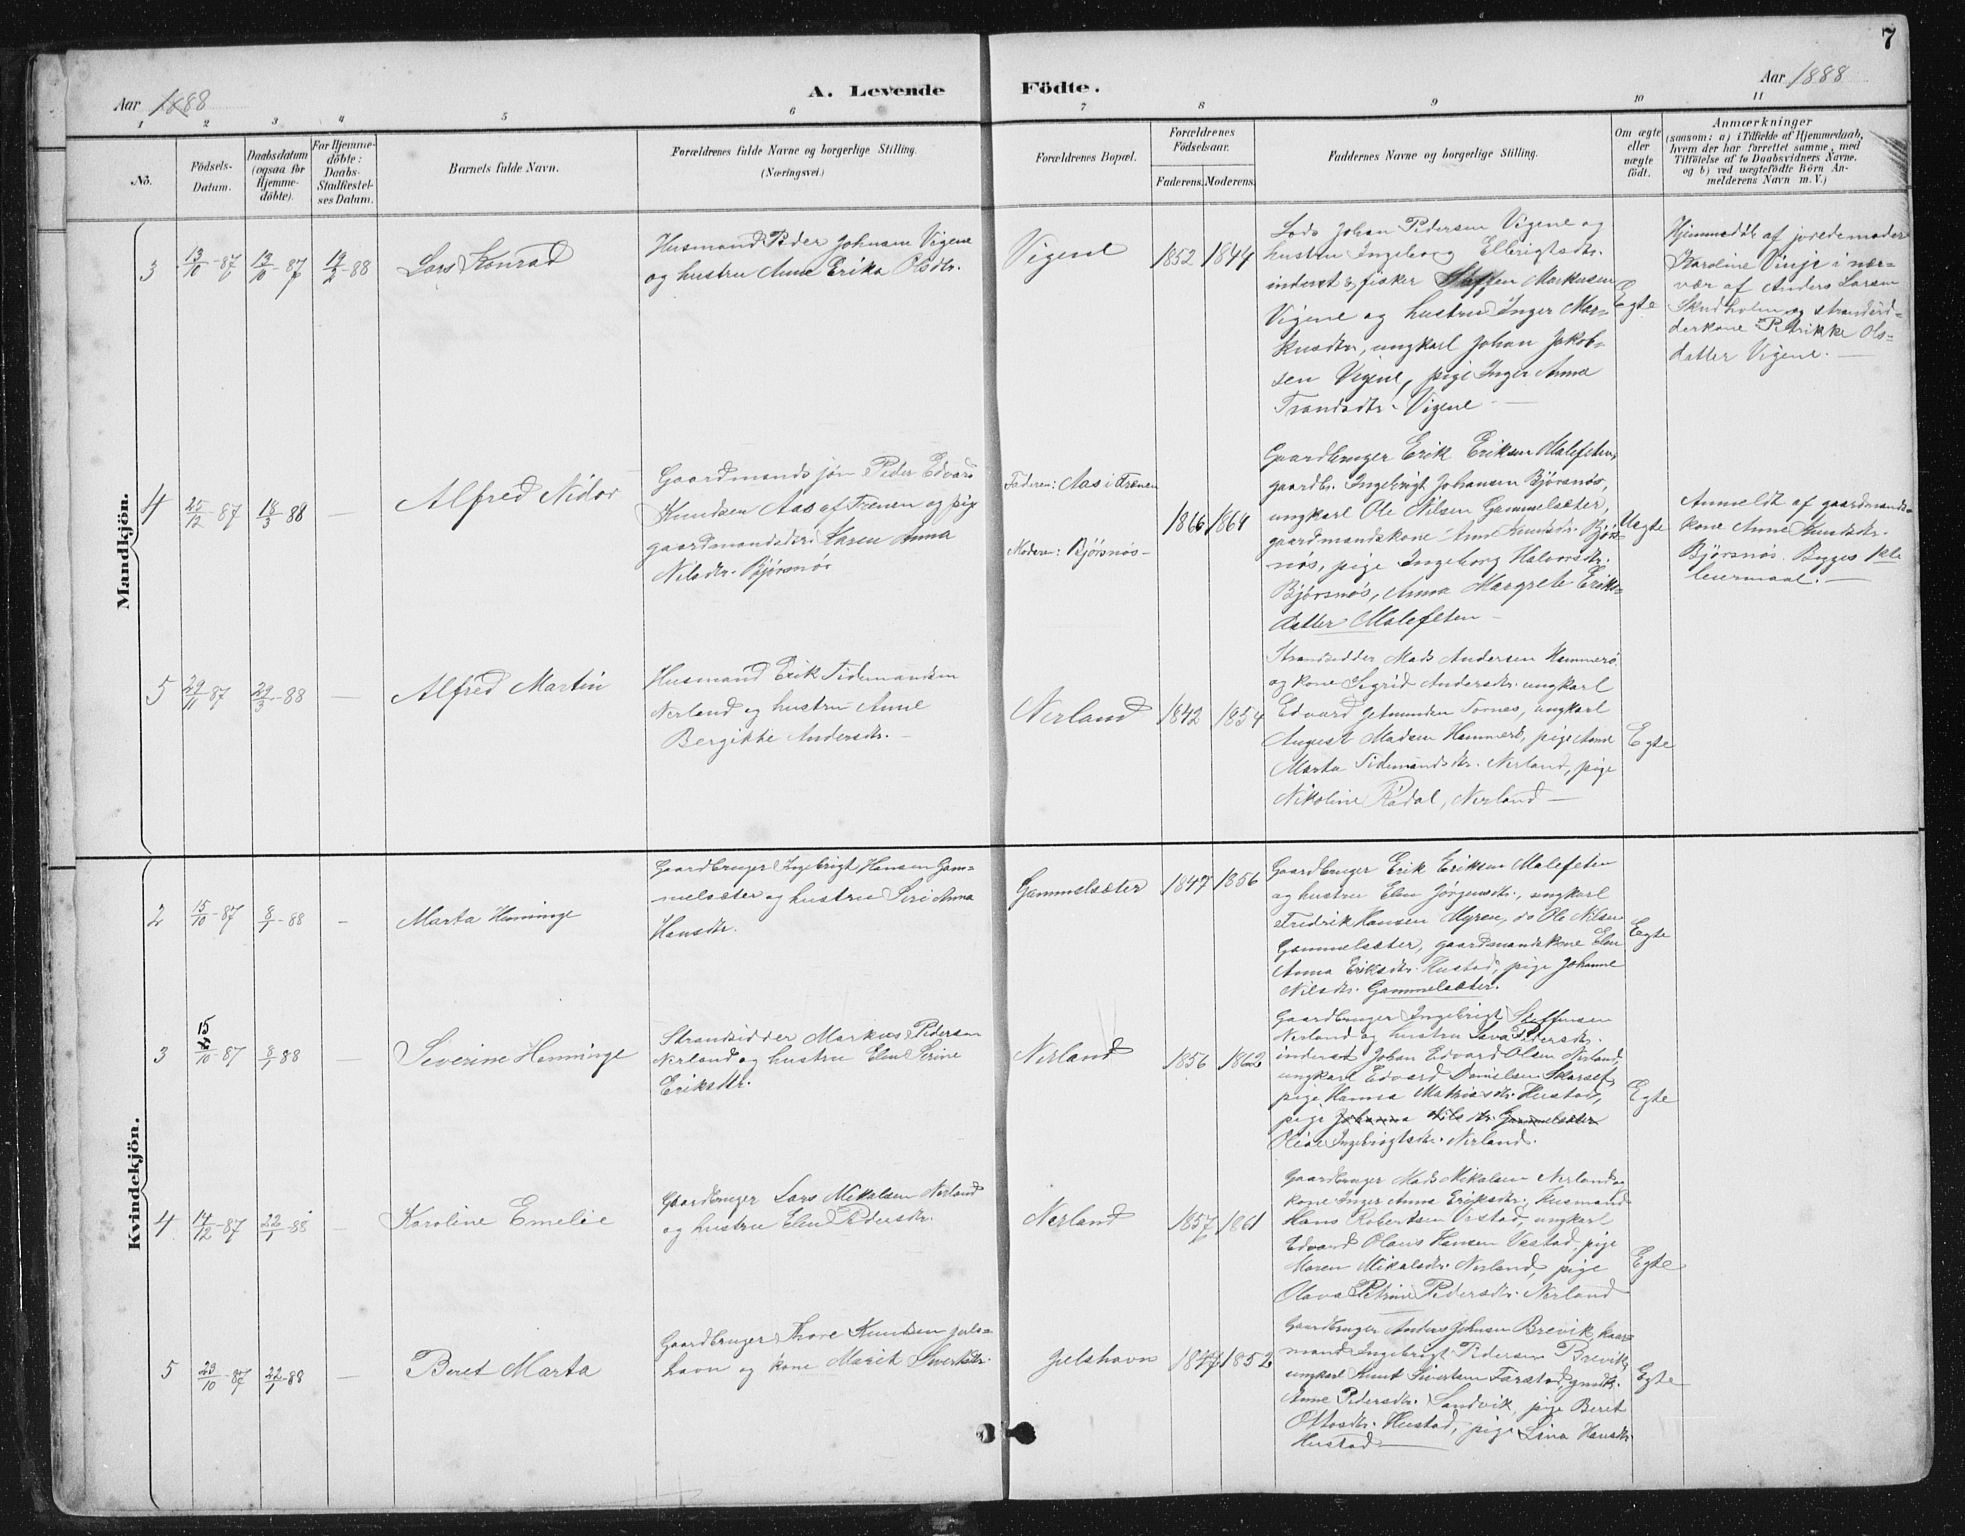 7
Aar 1888
A. Levende
Födte.
Aar 1888
1 2 3 4 5 6 7 8 9 10 11
No.
Födsels-
Datum.
Daabsdatum
(ogsaa for
Hjemme-
döbte).
For Hjemme-
döbte:
Daabs-
Stadfæstel-
ses Datum.
Barnets fulde Navn.
Forældrenes fulde Navne og borgerlige Stilling.
(Næringsvei.)
Forældrenes Bopæl.
Forældrenes
Födselsaar.
Faderens. Moderens.
Faddernes Navne og borgerlige Stilling.
Om ægte
eller
uægte
födt.
Anmærkninger
(saasom: a) i Tilfælde af Hjemmedaab,
hvem der har forrettet samme, med
Tilföielse af to Daabsvidners Navne.
og b) ved uægtefödte Börn An-
melderens Navn m. V.)
Mandkjön.
3
13/10-87
19/2-88
Lars Konrad
Husmand Peder Johnsen Vigene
og hustru Anne Erika Olsdtr.
Vigene
1852 1844
Lods Johan Pedersen Vigene og
hustru Ingeborg Ellevigtsdtr.
inderst & fisker Steffen Markussen
Vigene og hustru Inger Mar-
kusdtr, ungkarl Johan Jakob-
sen Vigene, pige Inger Anna
Trondsdtr. Vigene
Egte
Hjemmedöbt af jordemoder
Karoline Vinje i nær-
vær af Anders Larsen
Skudholm og strandsid-
derkone Petrikke Ols-
datter Vigene.
4
25/12-87
18/3-88
Alfred Nidor
Gaardmandssön Peder Edvard
Knudsen Aas af Frænen og pige
gaardmandsdtr. Karen Anna
Nilsdtr. Bjørsnøs
Faderen: Aas i Frænen
Moderen: Bjørsnøs
1866 1864
Gaardbruger Erik Eriksen Malefeten,
gaardbr. Ingebrigt Johansen Bjørsnøs,
ungkarl Ole Nilsen Gammelsæter,
gaardmandskone Anne Knudsdtr. Bjørs-
nøs, pige Ingeborg Halvorsdtr.
Bjørsnøs, Anna Margrete Eriks-
datter Malefeten
Uegte
Anmeldt af gaardmands-
kone Anne Knudsdtr.
Bjørsnøs. Begges 1ste
leiermaal.
5
29/11-87
29/3-88
Alfred Martin
Husmand Erik Tidemandsen
Nerland og hustru Anne
Bergitte Andersdtr.
Nerland
1842 1854
Strandsidder Mads Andersen Hammerö
og kone Sigrid Andersdtr. ungkarl
Edvard Tornes, ungkarl
August Madsen Hammerö, pige Anne
Marta Tidemandsdtr. Nerland, pige
Nikoline Rödal, Nerland
Egte
Kvindekjön.
2
15/10-87
8/1-88
Marta Henninge
Gaardbruger Ingebrigt Hansen Gam-
melsæter og hustru Siri Anna
Hansdtr.
Gammelsæter
1847 1856
Gaardbruger Erik Eriksen Malefeten
og hustru Elen Jørgensdtr., ungkarl
Fredrik Hansen Myren, do Ole Nilsen
Gammelsæter, gaardmandskone Elen
Anna Eriksdtr. Hustad, pige Johanne
Nilsdtr. Gammelsæter.
Egte
3
15/10-87
8/1-88
Severine Henninge
Strandsidder Markus Pedersen
Nerland og hustru Elen Serine
Eriksdtr.
Nerland
1856 1862
Gaardbruger Ingebrigt Steffensen
Nerland og hustru Lava Pedersdtr.
inderst Johan Edvard Olsen Nerland,
ungkarl Edvard Danielsen Skarset,
pige Hanna Mathiasdtr. Hustad,
pige Johanna Nilsdtr. Gammelsæter
Oline Ingebrigtsdtr. Nerland.
Egte
4
14/12-87
22/1-88
Karoline Emelie
Gaardbruger Lars Mikalsen Nerland
og hustru Elen Pedersdtr.
Nerland
1857 1861
Gaardbruger Mads Mikalsen Nerland og
kone Inger Anna Eriksdtr. husmand
Hans Robertsen Vestad, ungkarl
Edvard Olaus Hansen Vestad, pige
Maren Mikalsdtr. Nerland, pige
Olava Petrine Pedersdtr. Nerland
Egte
5
23/10-87
22/1-88
Beret Marta
Gaardbruger Thore Knudsen Juls-
havn og kone Marit Sivertsdtr.
Julshavn
1847 1852
Gaardbruger Anders Johnsen Brevik, kaar-
mand Ingebrigt Pedersen Brevik,
ungkarl Knut Sivertsen Farstad, gmdk.
Anne Pedersdtr. Sandvik, pige Beret
Ottosdtr. Hustad, pige Lina Hansdtr.
Hustad
Egte